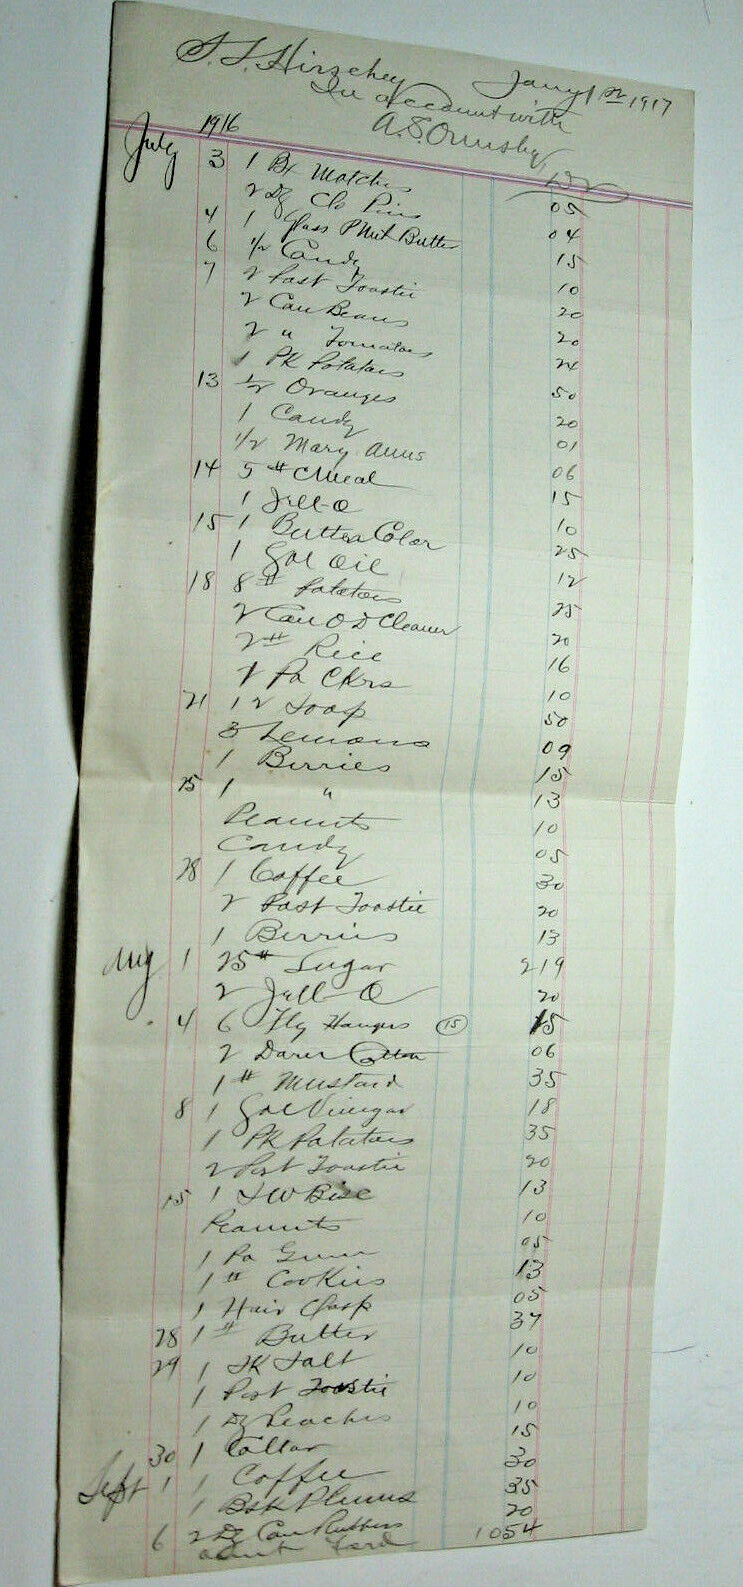 S. S. Hirschey Jany 1st 1917
In account with
A. S. Ormsby
1916 Dr
July 3 1 Bx Matches 05
2 Dz Clo Pins 04
4 1 Glass P Nut Butter 15
6 1/2 Candy 10
7 2 Post Toastie 20
2 Can Beans 20
2 " Tomatoes 24
1 PK Potatoes 50
13 1/2 Oranges 20
1 Candy 01
1/2 Mary Anns 06
14 5 # C Meal 15
1 Jell-O 10
15 1 Butter Color 25
1 Gal Oil 12
18 8 # Potatoes 25
2 Can O D Cleaner 20
2 # Rice 16
2 Pa Ckrs 10
21 12 Soap 50
3 Lemons 09
1 Berries 15
25 1 " 13
Peanuts 10
Candy 05
28 1 Coffee 30
2 Post Toastie 20
1 Berries 13
Aug 1 25 # Sugar 2 19
2 Jell-O 20
4 6 Fly Hangers (15) 15
2 Darn Cotton 06
1 # Mustard 35
8 1 Gal Vinegar 18
1 PK Potatoes 35
2 Post Toastie 20
15 1 S W Bisc 13
Peanuts 10
1 Pa Gum 05
1 # Cookies 13
1 Hair Clasp 05
28 1 # Butter 37
29 1 SK Salt 10
1 Post Toastie 10
1 Dz Peaches 10
30 1 Collar 15
Sept 1 1 Coffee 30
1 Bsk Plums 35
6 2 Dz Can Rubbers 20
amt ford 10 54